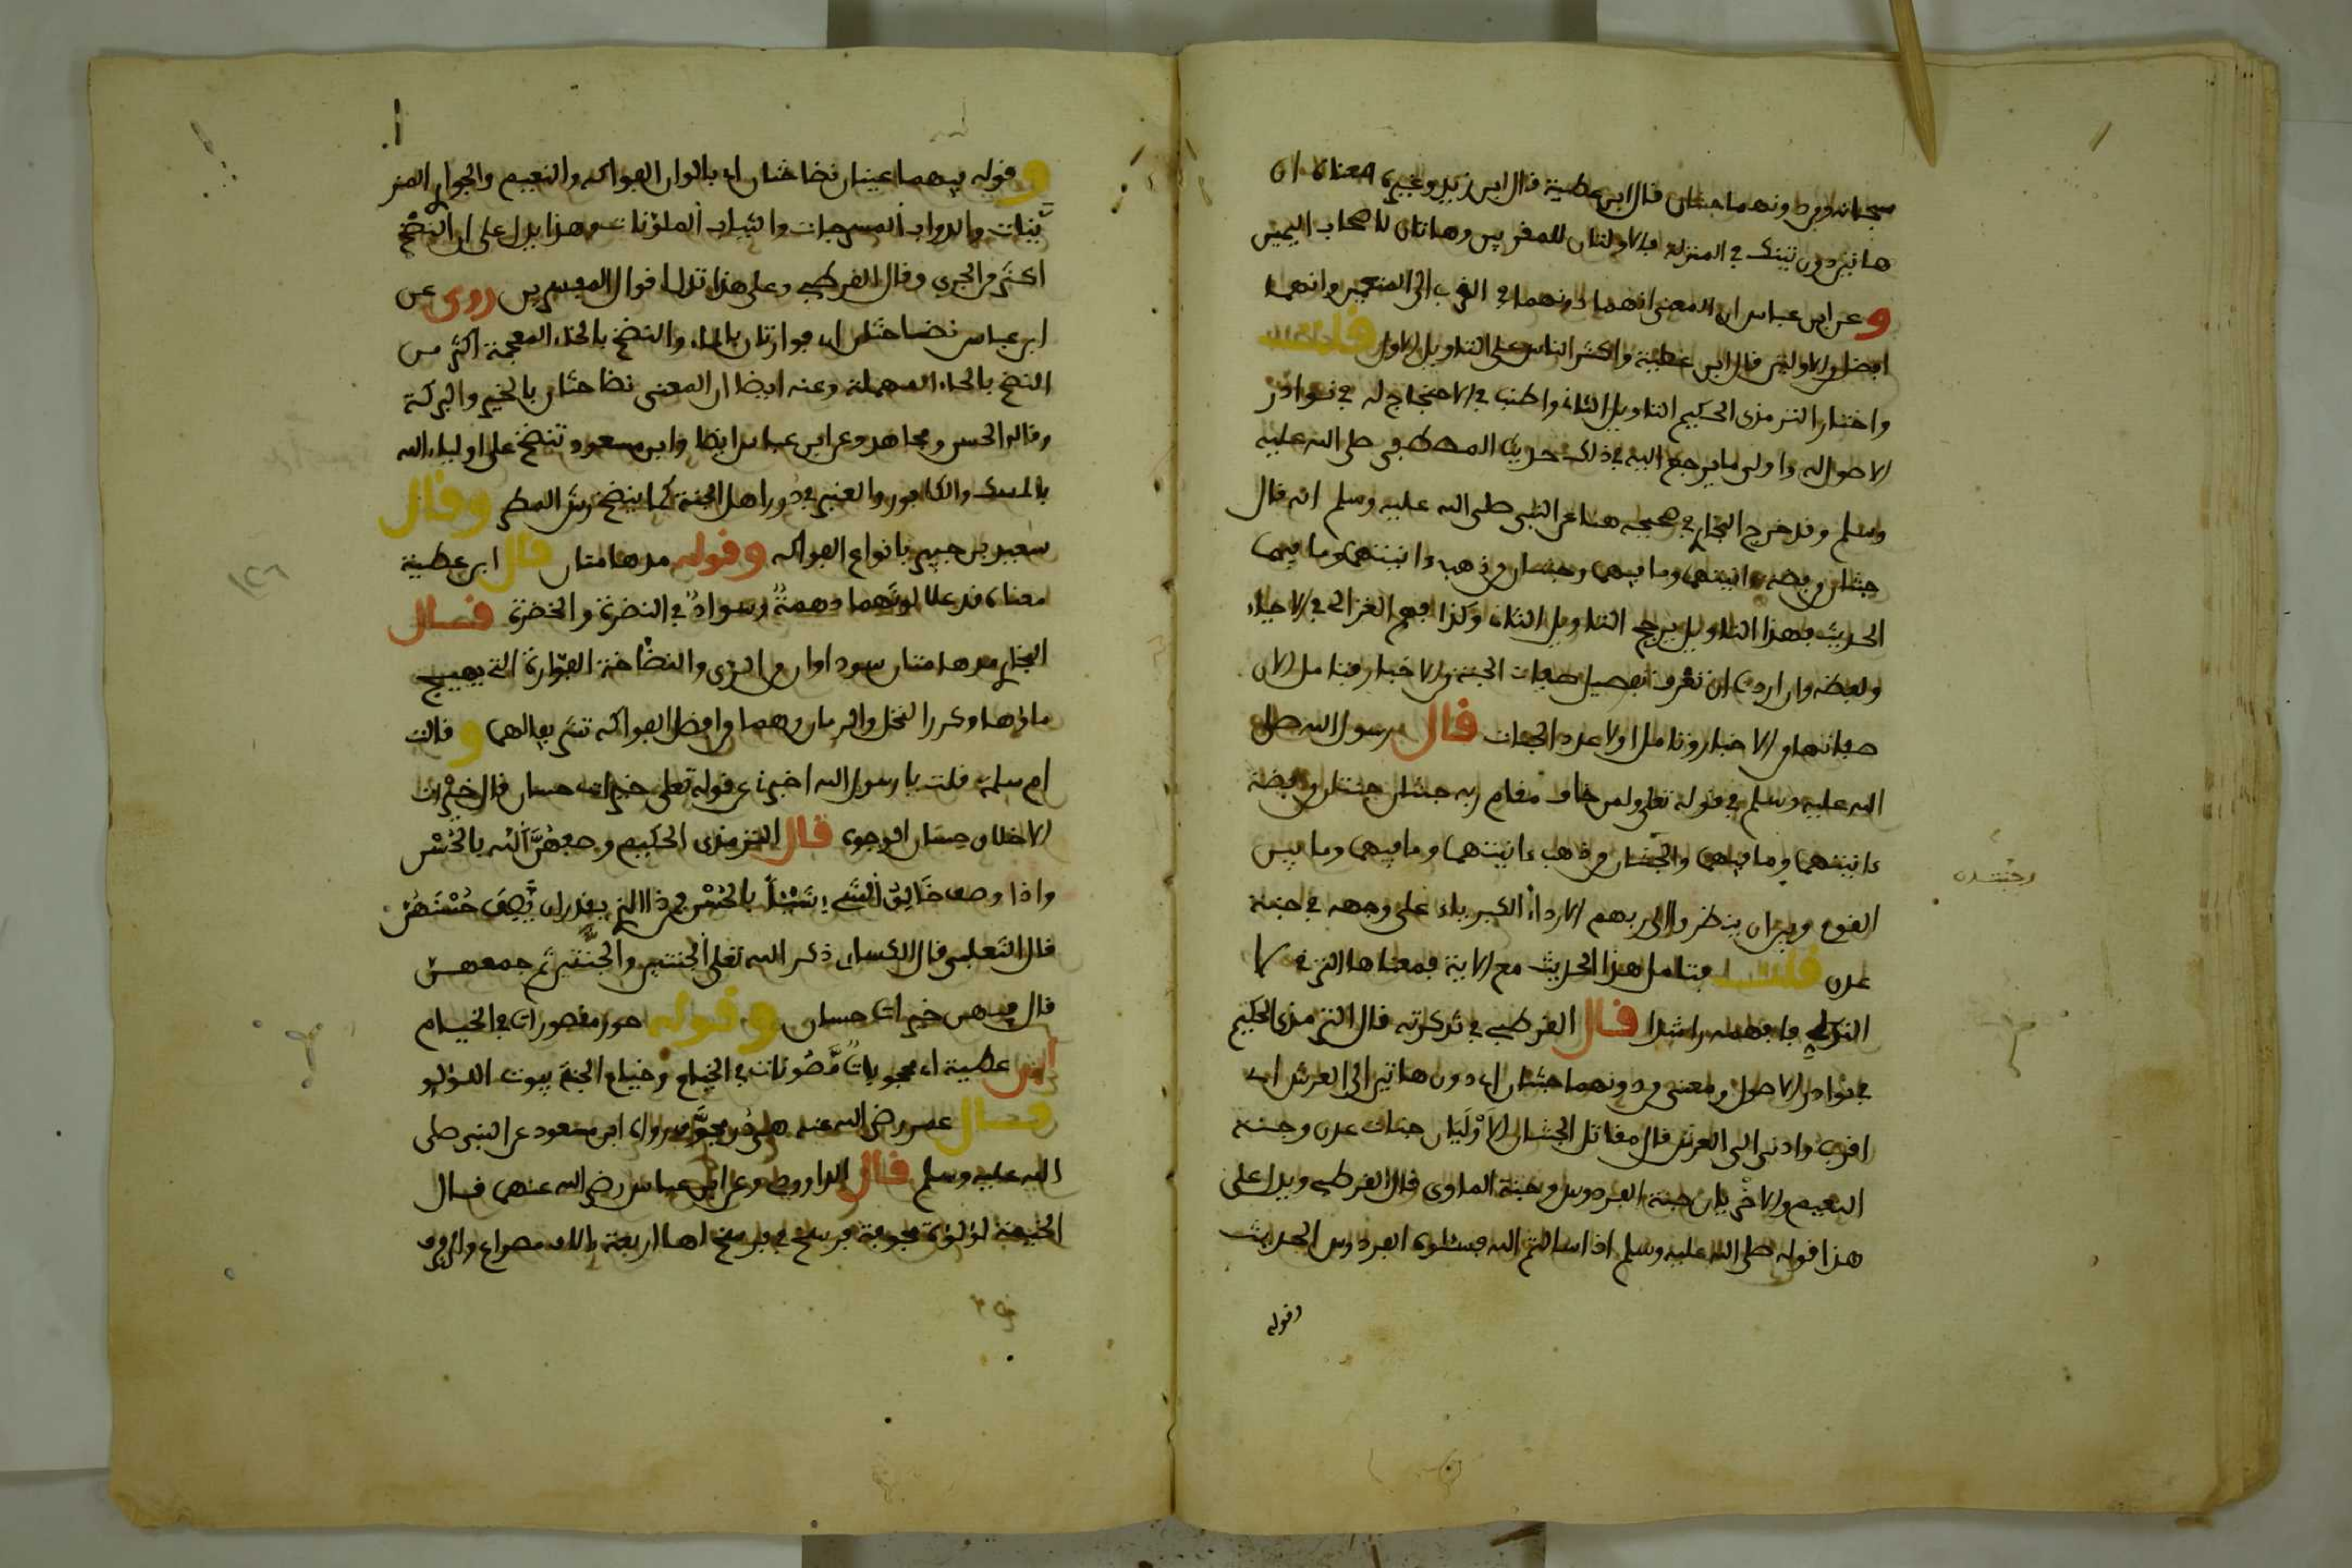 سبحانه ومن دونهما جنتان قال ابن عطية قال ابن زيد وغيره معناه ان
هاتين دون تينك في المنزلة فالاولتان للمقربين وهاتان لاصحاب اليمين
وعن ابن عباس ان المعنى انهما دونهما في القرب الى المنعمين وانهما
افضل من الاوليين قال ابن عطية واكثر الناس على التاويل الاول قلت
واختار الترمذي الحكيم التاويل الثاني واطنب في الاحتجاج له في نوادر
الاصول له واولى ما يرجع اليه في ذلك حديث المصطفى صلى الله عليه
وسلم وقد خرج البخاري في صحيحه هنا عن النبي صلى الله عليه وسلم انه قال
جنتان من فضة ءانيتهما وما فيهما وجنتان من ذهب ءانيتهما وما فيهما
الحديث فهذا التاويل يرجح التاويل الثاني وكذا فهم الغزالي في الاحياء
ولفظه وان اردت ان تعرف تفصيل صفات الجنة من الاخبار فتامل الان
صفاتها من الاخبار وتامل اولا عدد الجنات قال رسول الله صلى
الله عليه وسلم في قوله تعلى ولمن خاف مقام ربه جنتان جنتان من فضة
ءانيتهما وما فيهما والجنتان من ذهب ءانيتهما وما فيهما وما بين
القوم وبين ان ينظروا الى ربهم الا رداء الكبرياء على وجهه في جنة
عدن قلت فتامل هذا الحديث مع الاية فمعناها الترقي لا
التدلي فافهمه راشدا قال القرطبي في تذكرته قال الترمذي الحكيم
في نوادر الاصول ومعنى ومن دونهما جنتان اي دون هاتين الى العرش اي
اقرب وادنى الى العرش قال مقاتل الجنتان الاوليان جنات عدن وجنة
النعيم والاخريان جنة الفردوس وجنة الماوى قال القرطبي ويدل على
هذا قوله صلى الله عليه وسلم اذا سالتم الله فسئلوه الفردوس الحديث
وقوله
وقوله فيهما عينان نضاختان اي بالوان الفواكه والنعيم والجوار المز
ينات والدواب المسرجات والثياب الملونات وهذا يدل على ان النضخ
اكثر من الجري وقال القرطبي وعلى هذا تدل اقوال المفسرين روى عن
ابن عباس نضاختان اي فوارتان بالماء والنضخ بالخاء المعجمة اكثر من
النضح بالحاء المهملة وعنه ايضا ان المعنى نضاختان بالخير والبركة
وقاله الحسن ومجاهد وعن ابن عباس ايضا وابن مسعود تنضخ على اولياء الله
بالمسك والكافور والعنبر في دور اهل الجنة كما ينضخ رش المطر وقال
سعيد بن جبير بانواع الفواكه وقوله مدهامتان قال ابن عطية
معناه قد علا لونهما دهمة وسواد في النضرة والخضرة قال
البخاري مدهامتان سوداوان من الري والنضاخة الفوارة التي يهيج
ماؤها وكرر النخل والرمان وهما من افضل الفواكه تشريفا لهما وقالت
ام سلمة قلت يا رسول الله اخبرني عن قوله تعلى خيرات حسان قال خيرات
الاخلاق حسان الوجوه قال الترمذي الحكيم وصفهن الله بالحسن
واذا وصف خالق الشيء شيئا بالحسن فمن ذا الذي يقدر ان يصف حسنهن
قال الثعلبي قال الكسائي ذكر الله تعلى الجنتين والجنتين ثم جمعهن
قال فيهن خيرات حسان وقوله حور مقصورات في الخيام
ابن عطية اي محجوبات مصونات في الخيام وخيام الجنة بيوت اللؤلؤ
قال عمر رضي الله عنه هي در مجوف ورواه ابن مسعود عن النبي صلى
الله عليه وسلم قال الداوودي وعن ابن عباس رضي الله عنهما قال
الخيمة لؤلؤة مجوفة فرسخ في فرسخ لها اربعة ءالاف مصراع